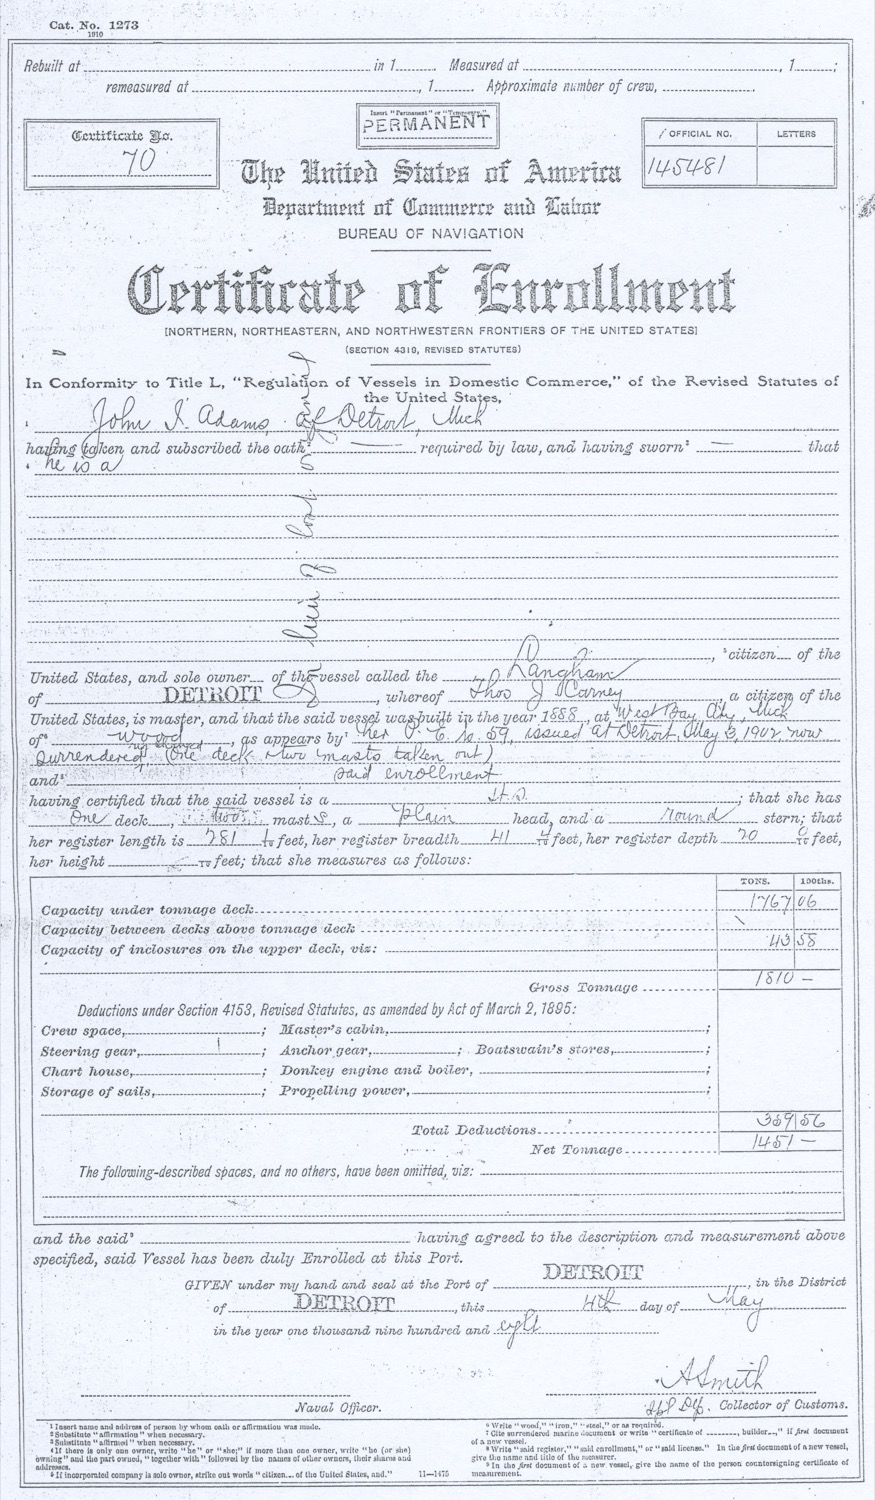 Cat. No. 1273
1910
Rebuilt at in 1 Measured at , 1 ;
remeasured at , 1 Approximate number of crew,
Insert "Permanent" or "Temporary."
PERMANENT
Certificate No.
70
OFFICIAL NO. LETTERS
145481
The United States of America
Department of Commerce and Labor
BUREAU OF NAVIGATION
Certificate of Enrollment
[NORTHERN, NORTHEASTERN, AND NORTHWESTERN FRONTIERS OF THE UNITED STATES]
(SECTION 4319, REVISED STATUTES)
In Conformity to Title L, "Regulation of Vessels in Domestic Commerce," of the Revised Statutes of
the United States,
1 John I. Adams, of Detroit, Mich
having taken and subscribed the oath 2 — required by law, and having sworn 3 — that
4 he is a
, 5 citizen of the
United States, and sole owner of the vessel called the D Langham
of DETROIT , whereof Thos J Carney , a citizen of the
United States, is master, and that the said vessel was built in the year 1888 , at West Bay City, Mich
of 6 wood , as appears by 7 her P. E. No. 59, issued at Detroit, May 3, 1902, now
surrendered, (One deck two masts taken out)
and 8 said enrollment
having certified that the said vessel is a ; that she has
One deck , masts, a plain head, and a round stern; that
her register length is 281 feet, her register breadth 41 4/10 feet, her register depth 20 0/10 feet,
her height /10 feet; that she measures as follows:
TONS. 100ths.
Capacity under tonnage deck 1767 06
Capacity between decks above tonnage deck
Capacity of inclosures on the upper deck, viz: 43 58
Gross Tonnage 1810 —
Deductions under Section 4153, Revised Statutes, as amended by Act of March 2, 1895:
Crew space, ; Master's cabin, ;
Steering gear, ; Anchor gear, ; Boatswain's stores, ;
Chart house, ; Donkey engine and boiler, ;
Storage of sails, ; Propelling power, ;
Total Deductions 359 56
Net Tonnage 1451 —
The following-described spaces, and no others, have been omitted, viz:
and the said 9 having agreed to the description and measurement above
specified, said Vessel has been duly Enrolled at this Port.
GIVEN under my hand and seal at the Port of DETROIT , in the District
of DETROIT , this 4th day of May
in the year one thousand nine hundred and eight
A Smith
Naval Officer. Collector of Customs.
1 Insert name and address of person by whom oath or affirmation was made.
2 Substitute "affirmation" when necessary.
3 Substitute "affirmed" when necessary.
4 If there is only one owner, write "he" or "she;" if more than one owner, write "he (or she)
owning" and the part owned, "together with" followed by the names of other owners, their shares and
addresses.
5 If incorporated company is sole owner, strike out words "citizen... of the United States, and."
11—1475
6 Write "wood," "iron," "steel," or as required.
7 Cite surrendered marine document or write "certificate of ........, builder...," if first document
of a new vessel.
8 Write "said register," "said enrollment," or "said license." In the first document of a new vessel,
give the name and title of the measurer.
9 In the first document of a new vessel, give the name of the person countersigning certificate of
measurement.